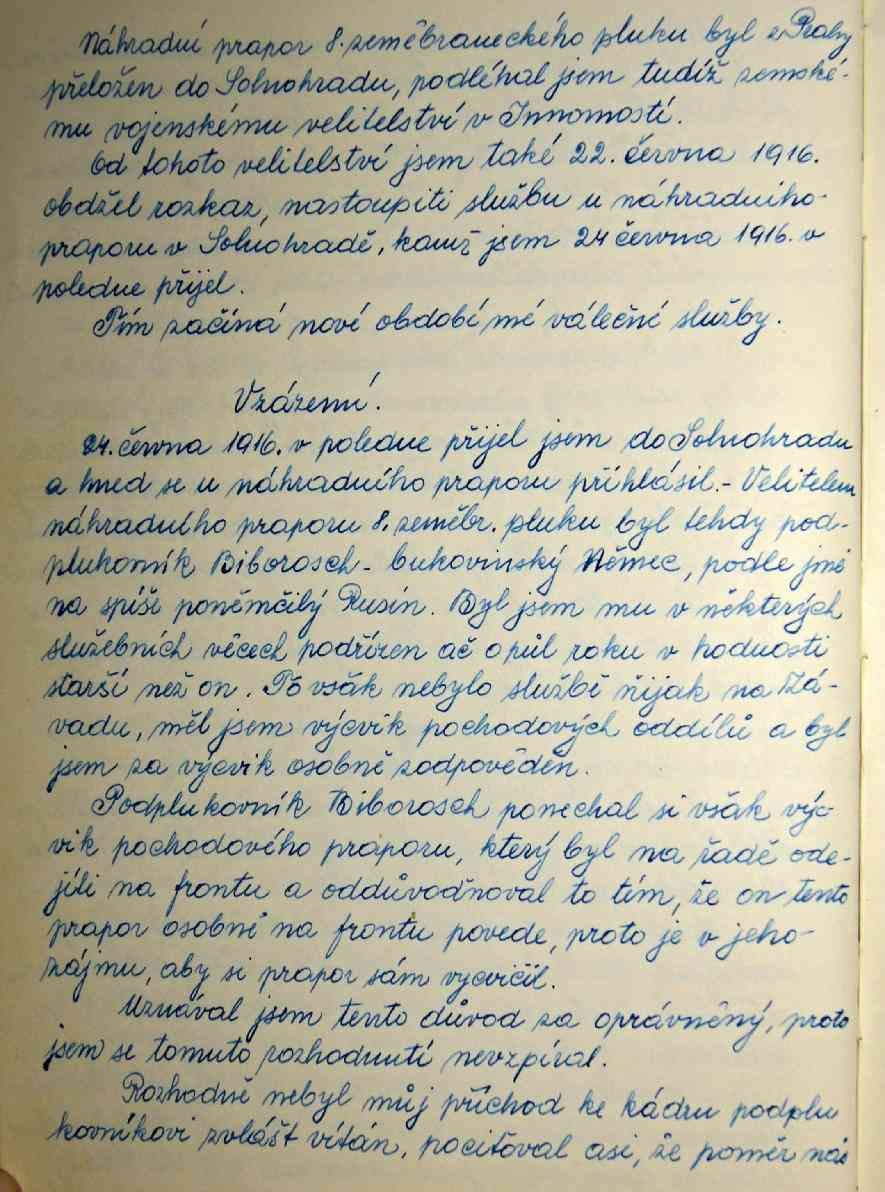 Náhradní prapor 8. zeměbraneckého pluku byl z Prahy
přeložen do Solnohradu, podléhal jsem tudíž zemské-
mu vojenskému velitelství v Innomostí.
Od tohoto velitelství jsem také 22. června 1916.
obdžel rozkaz, nastoupiti službu u náhradního-
praporu v Solnohradě, kamž jsem 24 června 1916. v
poledne přijel.
Tím začíná nové období mé válečné služby.
Vzázemí.
24. června 1916. v poledne přijel jsem do Solnohradu
a hned se u náhradního praporu přihlásil. - Velitelem
náhradního praporu 8. zeměbr. pluku byl tehdy pod-
plukovník Biborosch - bukovinský Němec, podle jmé
na spíše poněmčilý Rusín. Byl jsem mu v některých
služebních věcech podřízen ač o půl roku v hodnosti
starší než on. To však nebylo službě nijak na zá-
vadu, měl jsem výcvik pochodových oddílů a byl
jsem za výcvik osobně zodpověděn.
Podplukovník Biborosch ponechal si však výc-
vik pochodového praporu, který byl na řadě ode-
jíti na frontu a oddůvodňoval to tím, že on tento
prapor osobně na frontu povede, proto je v jeho-
zájmu, aby si prapor sám vycvičil.
Uznával jsem tento důvod za oprávněný, proto
jsem se tomuto rozhodnutí nevzpíral.
Rozhodně nebyl můj příchod ke kádru podplu
kovníkovi zvlášt vítán, pociťoval asi, že poměr nás